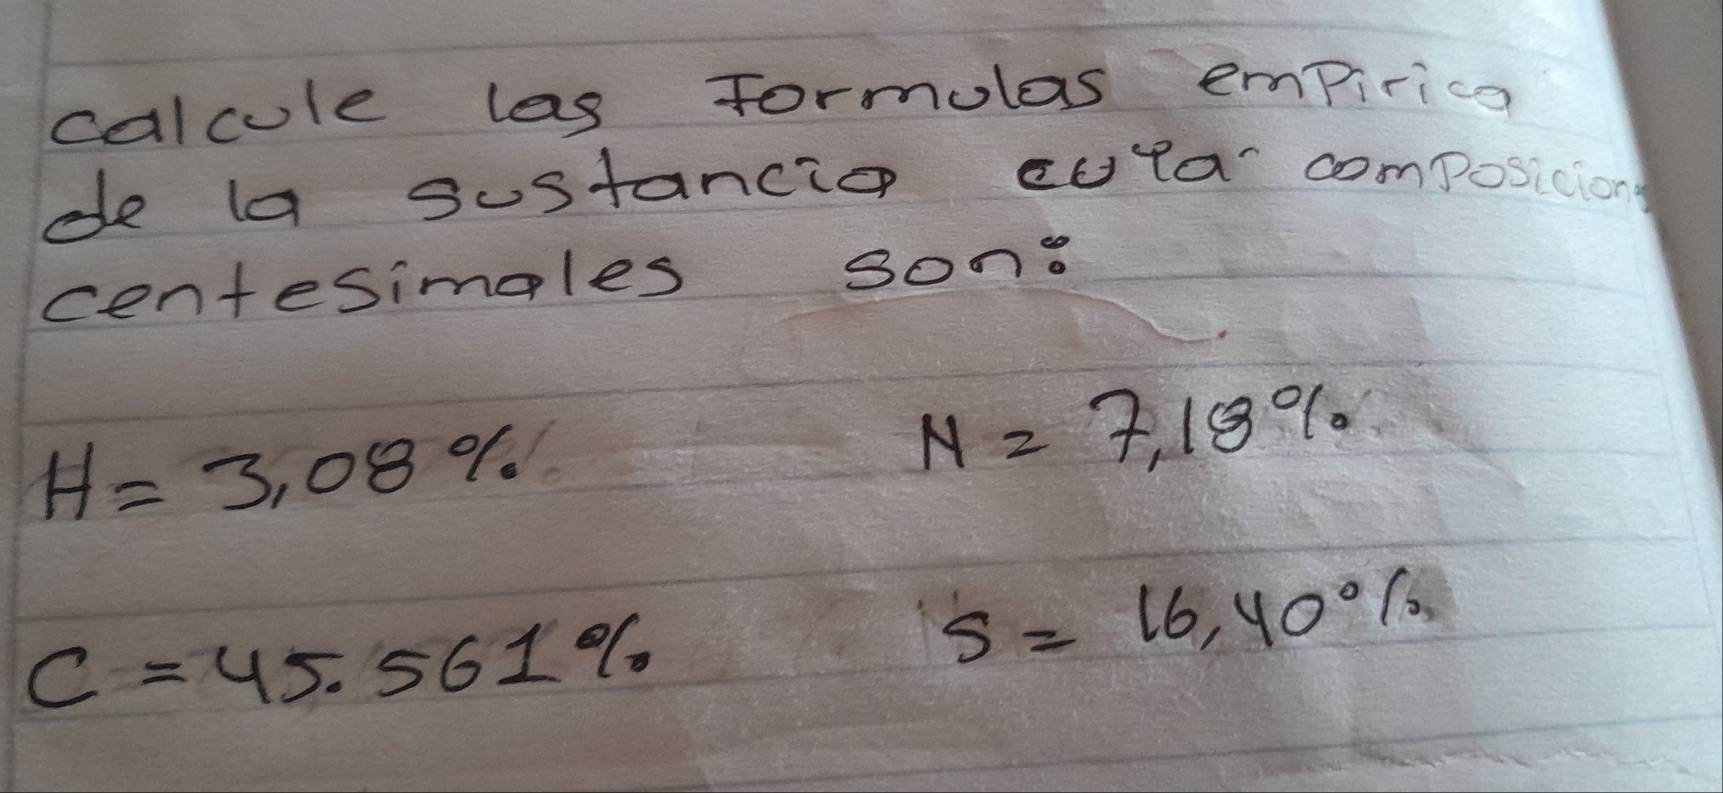 calcule las Formulas empirica
de la sustancia cuya composicion
centesimales son:
H = 3,08%
N = 7,18%
C = 45.561%
S = 16,40%